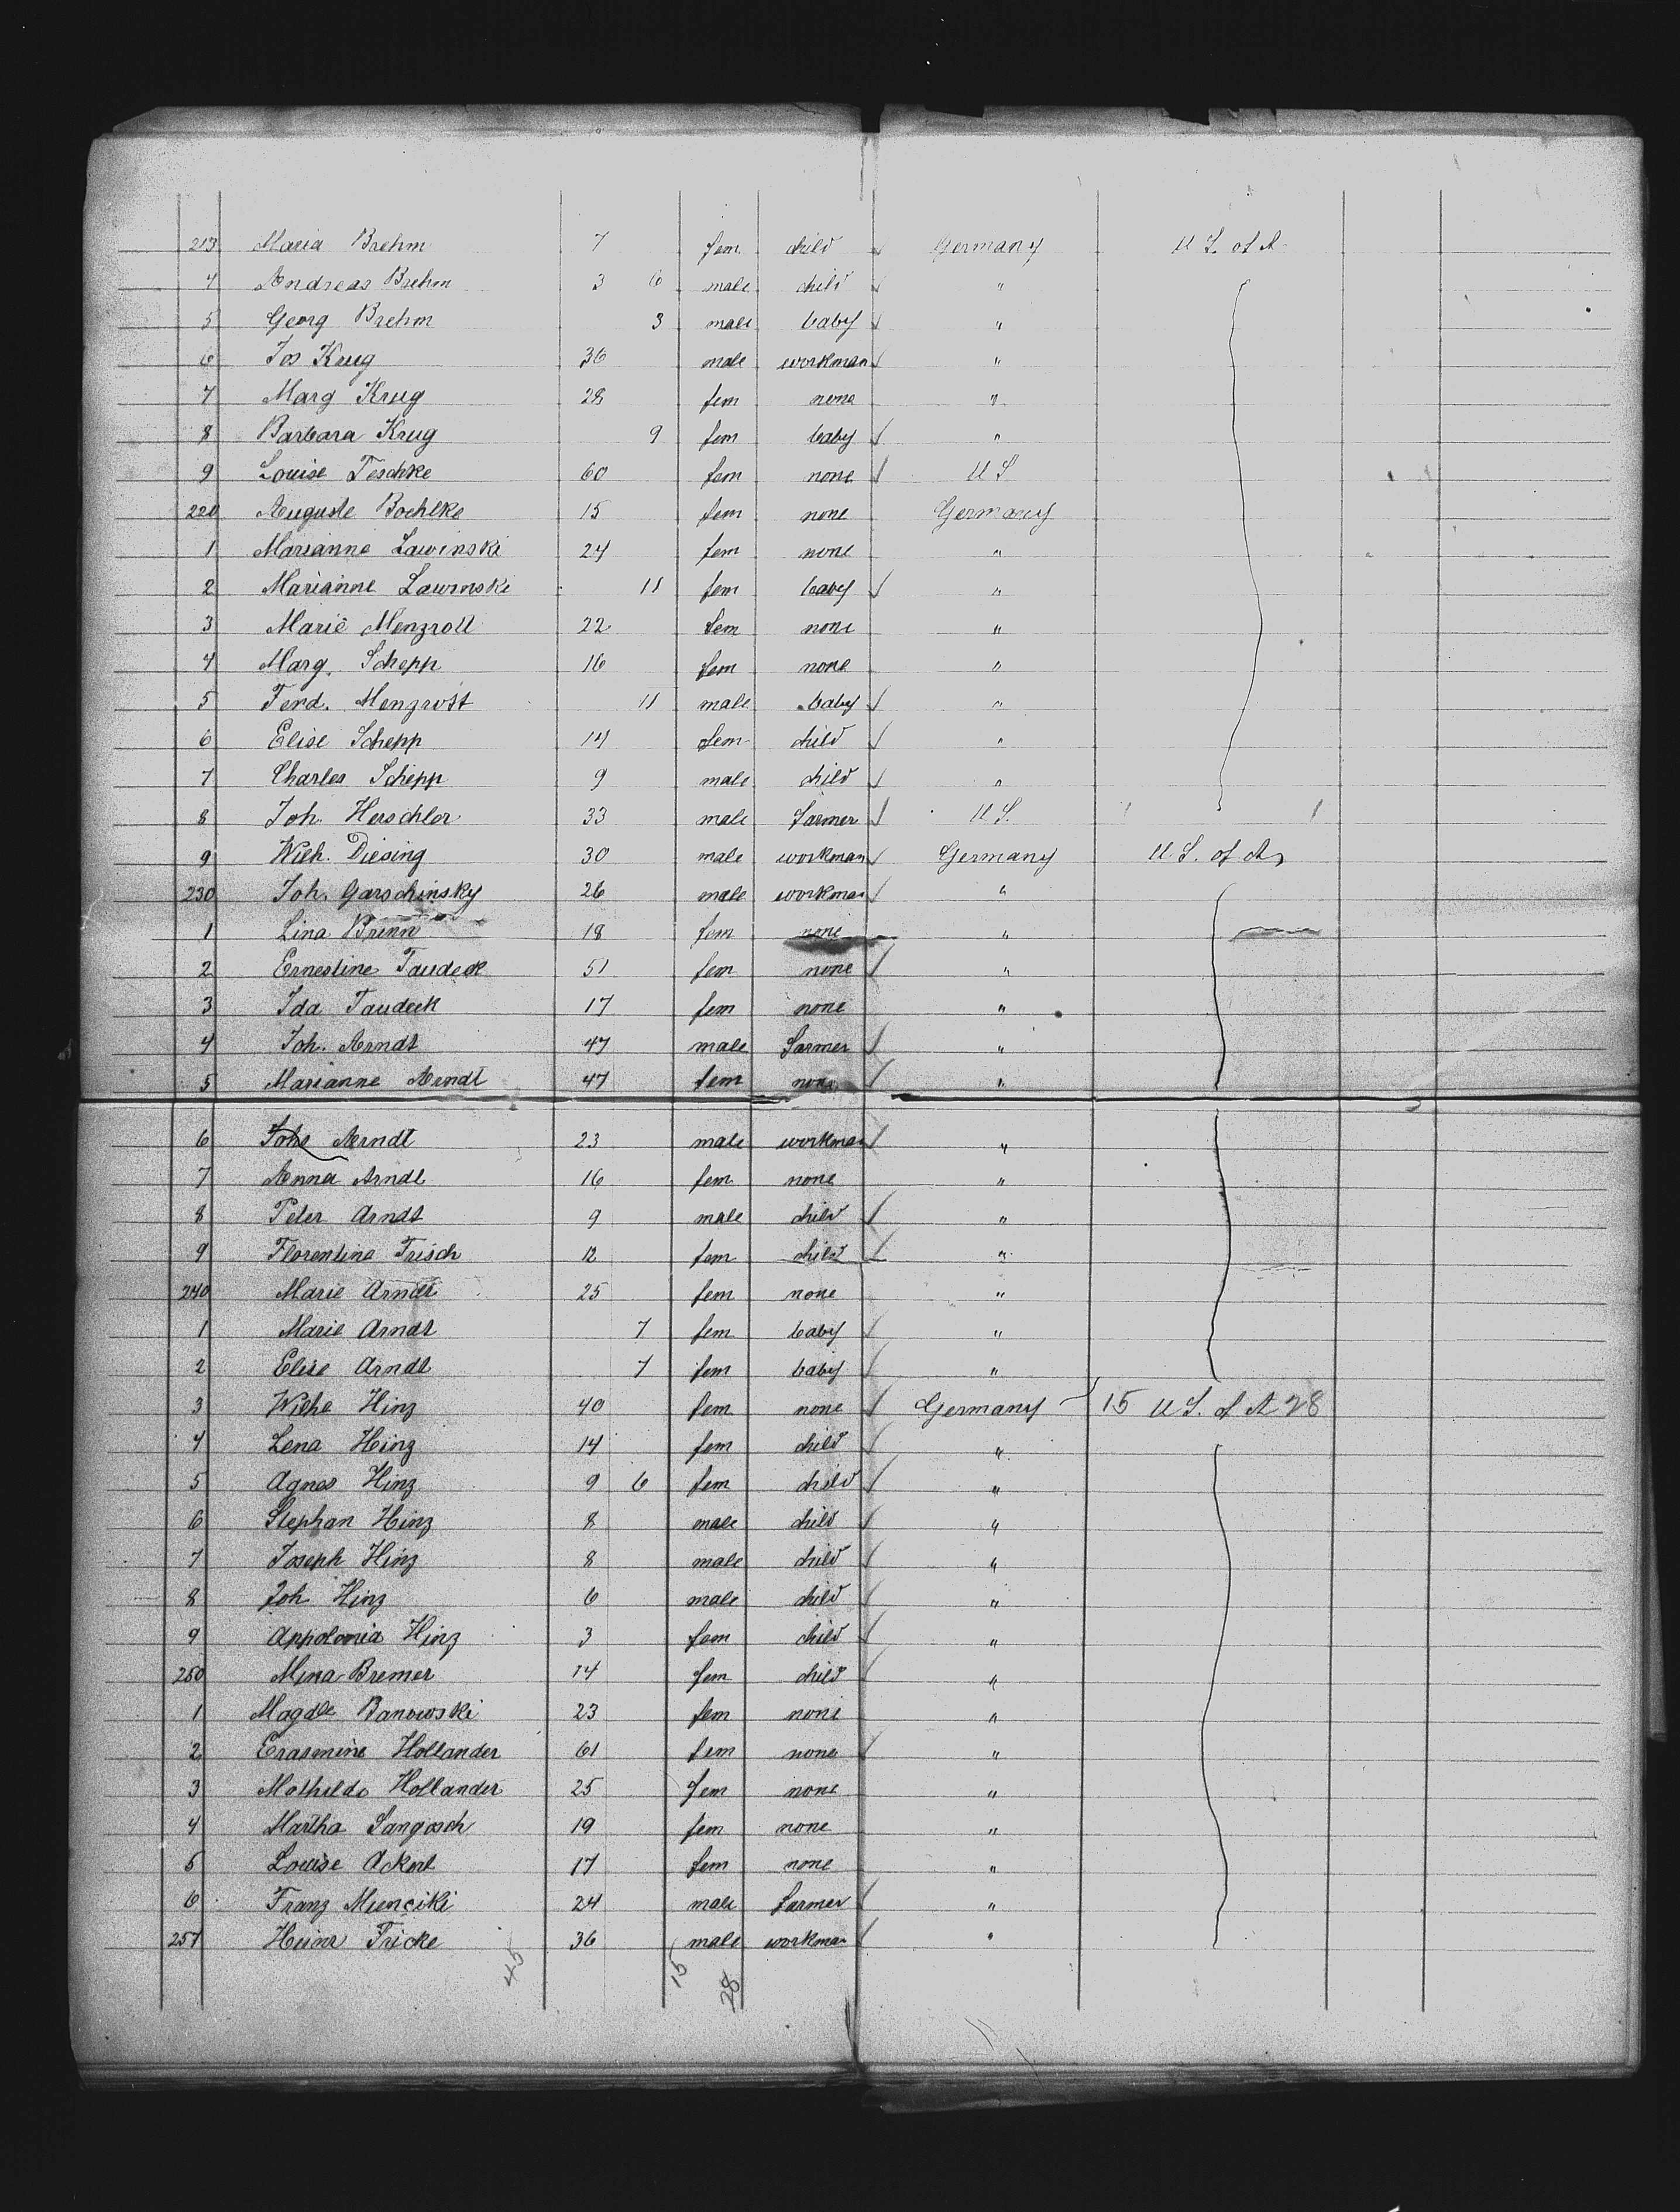 213 Maria Brehm 7 fem. child Germany U S. of A.
4 Andreas Brehm 3 6 male child "
5 Georg Brehm 3 male baby "
6 Jos Krug 36 male workman "
7 Marg Krug 28 fem none "
8 Barbara Krug 9 fem baby "
9 Louise Teschke 60 fem none U S
220 Auguste Boehlke 15 fem none Germany
1 Marianne Lawinski 24 fem none "
2 Marianne Lawinski 11 fem baby "
3 Marie Menzrott 22 fem none "
4 Marg. Schepp 16 fem none "
5 Ferd. Menzrott 11 male baby "
6 Elise Schepp 14 fem child "
7 Charles Schepp 9 male child "
8 Joh. Herschler 33 male farmer U S.
9 Wilh. Diesing 30 male workman Germany U. S. of A
230 Joh. Garschinsky 26 male workman "
1 Lina Brenn 18 fem none "
2 Ernestine Taudeck 51 fem none "
3 Ida Taudeck 17 fem none "
4 Joh. Arndt 47 male farmer "
5 Marianne Arndt 47 fem none "
6 Arndt 23 male workman "
7 Anna Arndt 16 fem none "
8 Peter Arndt 9 male child "
9 Florentine Frisch 12 fem child "
240 Marie Arndt 25 fem none "
1 Marie Arndt 7 fem baby "
2 Elise Arndt 7 fem baby "
3 Wilhe Hinz 40 fem none Germany 15 U S. of A 28
4 Lena Hinz 14 fem child "
5 Agnes Hinz 9 6 fem child "
6 Stephan Hinz 8 male child "
7 Joseph Hinz 8 male child "
8 Joh Hinz 6 male child "
9 Appolonia Hinz 3 fem child "
250 Mina Bremer 14 fem child "
1 Magdle Banowski 23 fem none "
2 Erasmine Hollander 61 fem none "
3 Mathilde Hollander 25 fem none "
4 Martha Sangosch 19 fem none "
5 Louise 17 fem none "
6 Franz 24 male farmer "
257 Heinr Fricke 36 male workman "
45 15 28